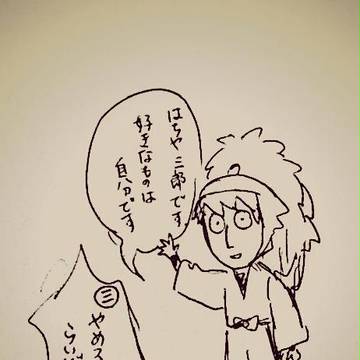 はちや三郎です
好きなものは
自分です
㊂
やめ
らい